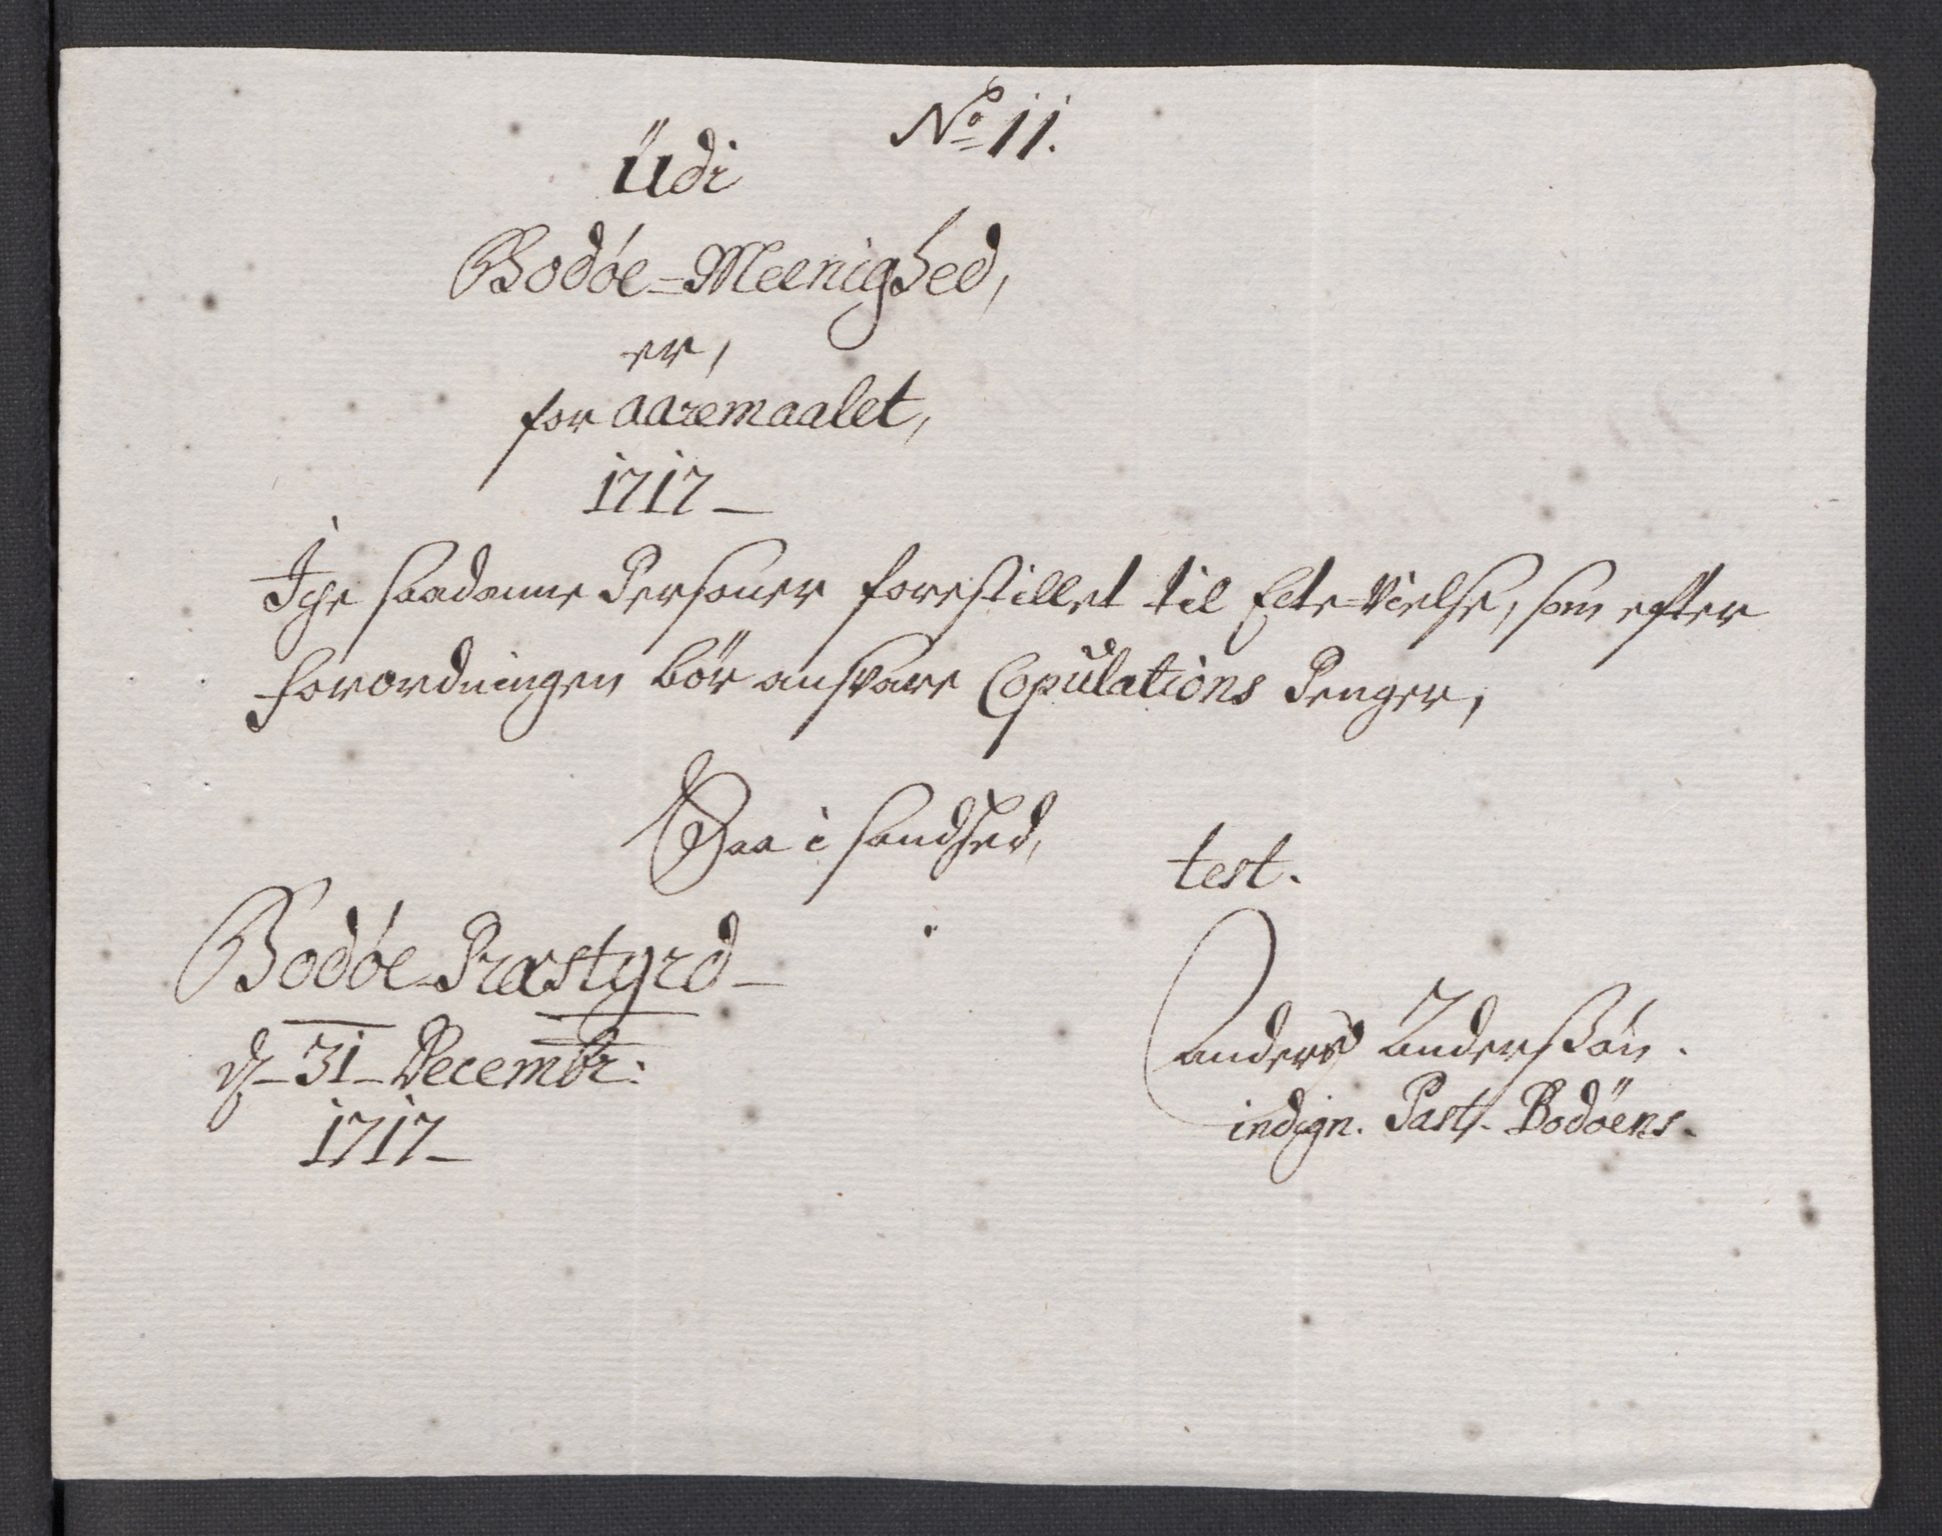 No 11.
Üdi
Bodøe-Meenighed,
er,
for aaremaalet,
1717
Iche saadanne Personer forestillet til Ecte-Vielse, som efter
forordningen bör ansvare Copülations Penger,
Saa i sandhed,
test.
Bodøe Præstgrd
d. 31 Decembr:
1717
Anders Anderssøn.
indign. Past. Bodöens.